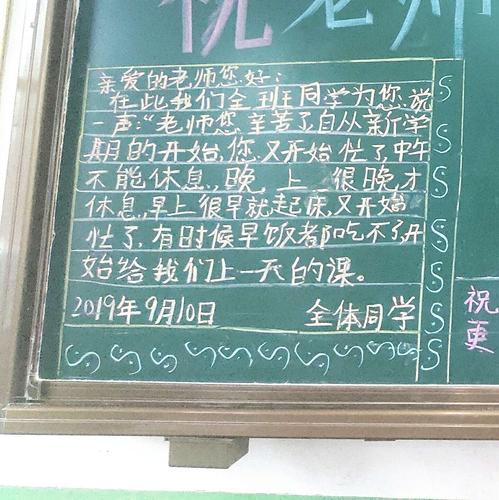 祝老师
亲爱的老师您好：
在此我们全班同学为您说
一声：“老师您辛苦了，自从新学
期的开始，您又开始忙了，中午
不能休息，晚上很晚才
休息，早上很早就起床，又开始
忙了，有时候早饭都吃不了，开
始给我们上一天的课。
2019年9月10日 全体同学
祝
更